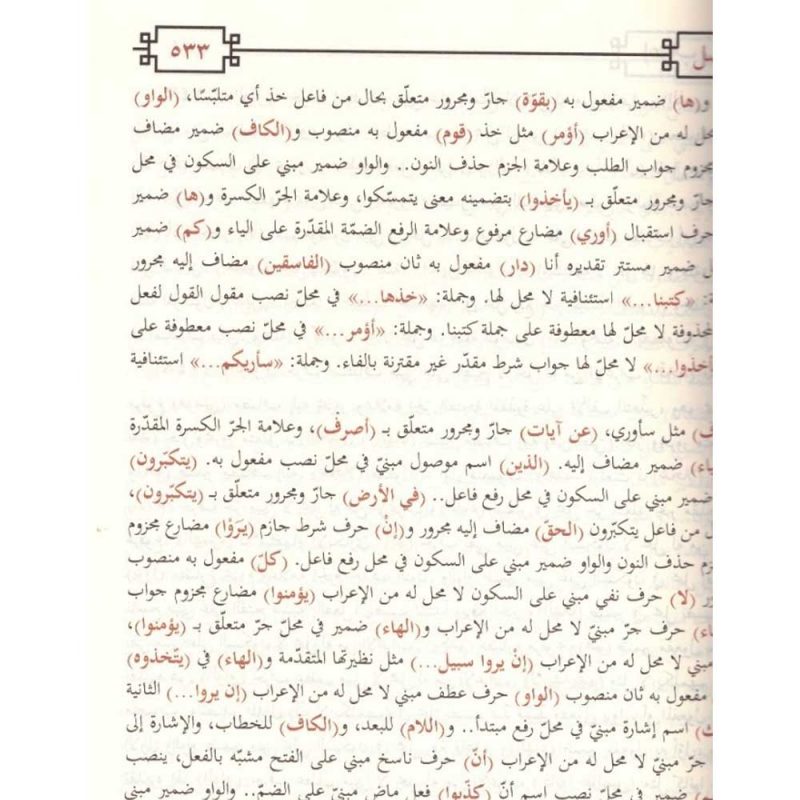 ٥٣٣
و(ها) ضمير مفعول به (بقوّة) جارّ ومجرور متعلّق بحال من فاعل خذ أي متلبّسًا، (الواو)
محل له من الإعراب (أؤمر) مثل خذ (قوم) مفعول به منصوب و(الكاف) ضمير مضاف
مجزوم جواب الطلب وعلامة الجزم حذف النون.. والواو ضمير مبني على السكون في محل
جارّ ومجرور متعلّق بـ (يأخذوا) بتضمينه معنى يتمسّكوا، وعلامة الجرّ الكسرة و(ها) ضمير
حرف استقبال (أوري) مضارع مرفوع وعلامة الرفع الضمّة المقدّرة على الياء و(كم) ضمير
ضمير مستتر تقديره أنا (دار) مفعول به ثان منصوب (الفاسقين) مضاف إليه مجرور
«كتبنا...» استئنافية لا محل لها. وجملة: «خذها...» في محلّ نصب مقول القول لفعل
لا محلّ لها معطوفة على جملة كتبنا. وجملة: «أؤمر...» في محلّ نصب معطوفة على
لا محلّ لها جواب شرط مقدّر غير مقترنة بالفاء. وجملة: «سأريكم...» استئنافية
مثل سأوري، (عن آيات) جارّ ومجرور متعلق بـ (أصرف)، وعلامة الجرّ الكسرة المقدّرة
ضمير مضاف إليه. (الذين) اسم موصول مبنيّ في محلّ نصب مفعول به. (يتكبّرون)
ضمير مبني على السكون في محل رفع فاعل.. (في الأرض) جارّ ومجرور متعلق بـ (يتكبّرون)،
من فاعل يتكبّرون (الحق) مضاف إليه مجرور و(إنْ) حرف شرط جازم (يَرَوْا) مضارع مجزوم
حذف النون والواو ضمير مبني على السكون في محل رفع فاعل. (كلّ) مفعول به منصوب
(لا) حرف نفي مبني على السكون لا محل له من الإعراب (يؤمنوا) مضارع مجزوم جواب
حرف جرّ مبنيّ لا محل له من الإعراب و(الهاء) ضمير في محلّ جرّ متعلّق بـ (يؤمنوا)،
مبني لا محل له من الإعراب (إنْ يروا سبيل...) مثل نظيرتها المتقدّمة و(الهاء) في (يتّخذوه)
مفعول به ثان منصوب (الواو) حرف عطف مبني لا محل له من الإعراب (إن يروا...) الثانية
اسم إشارة مبنيّ في محلّ رفع مبتدأ.. و(اللام) للبعد، و(الكاف) للخطاب، والإشارة إلى
جرّ مبنيّ لا محل له من الإعراب (أنّ) حرف ناسخ مبني على الفتح مشبّه بالفعل، ينصب
ضمير في محلّ نصب اسم أنّ (كذّبوا) فعل ماض مبنيّ على الضمّ.. والواو ضمير مبني